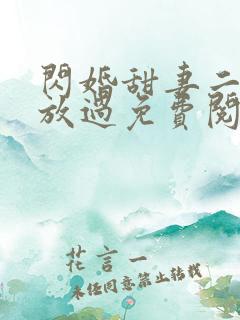 閃婚甜妻二
放過免費閱
花言一
未经同意禁止转载